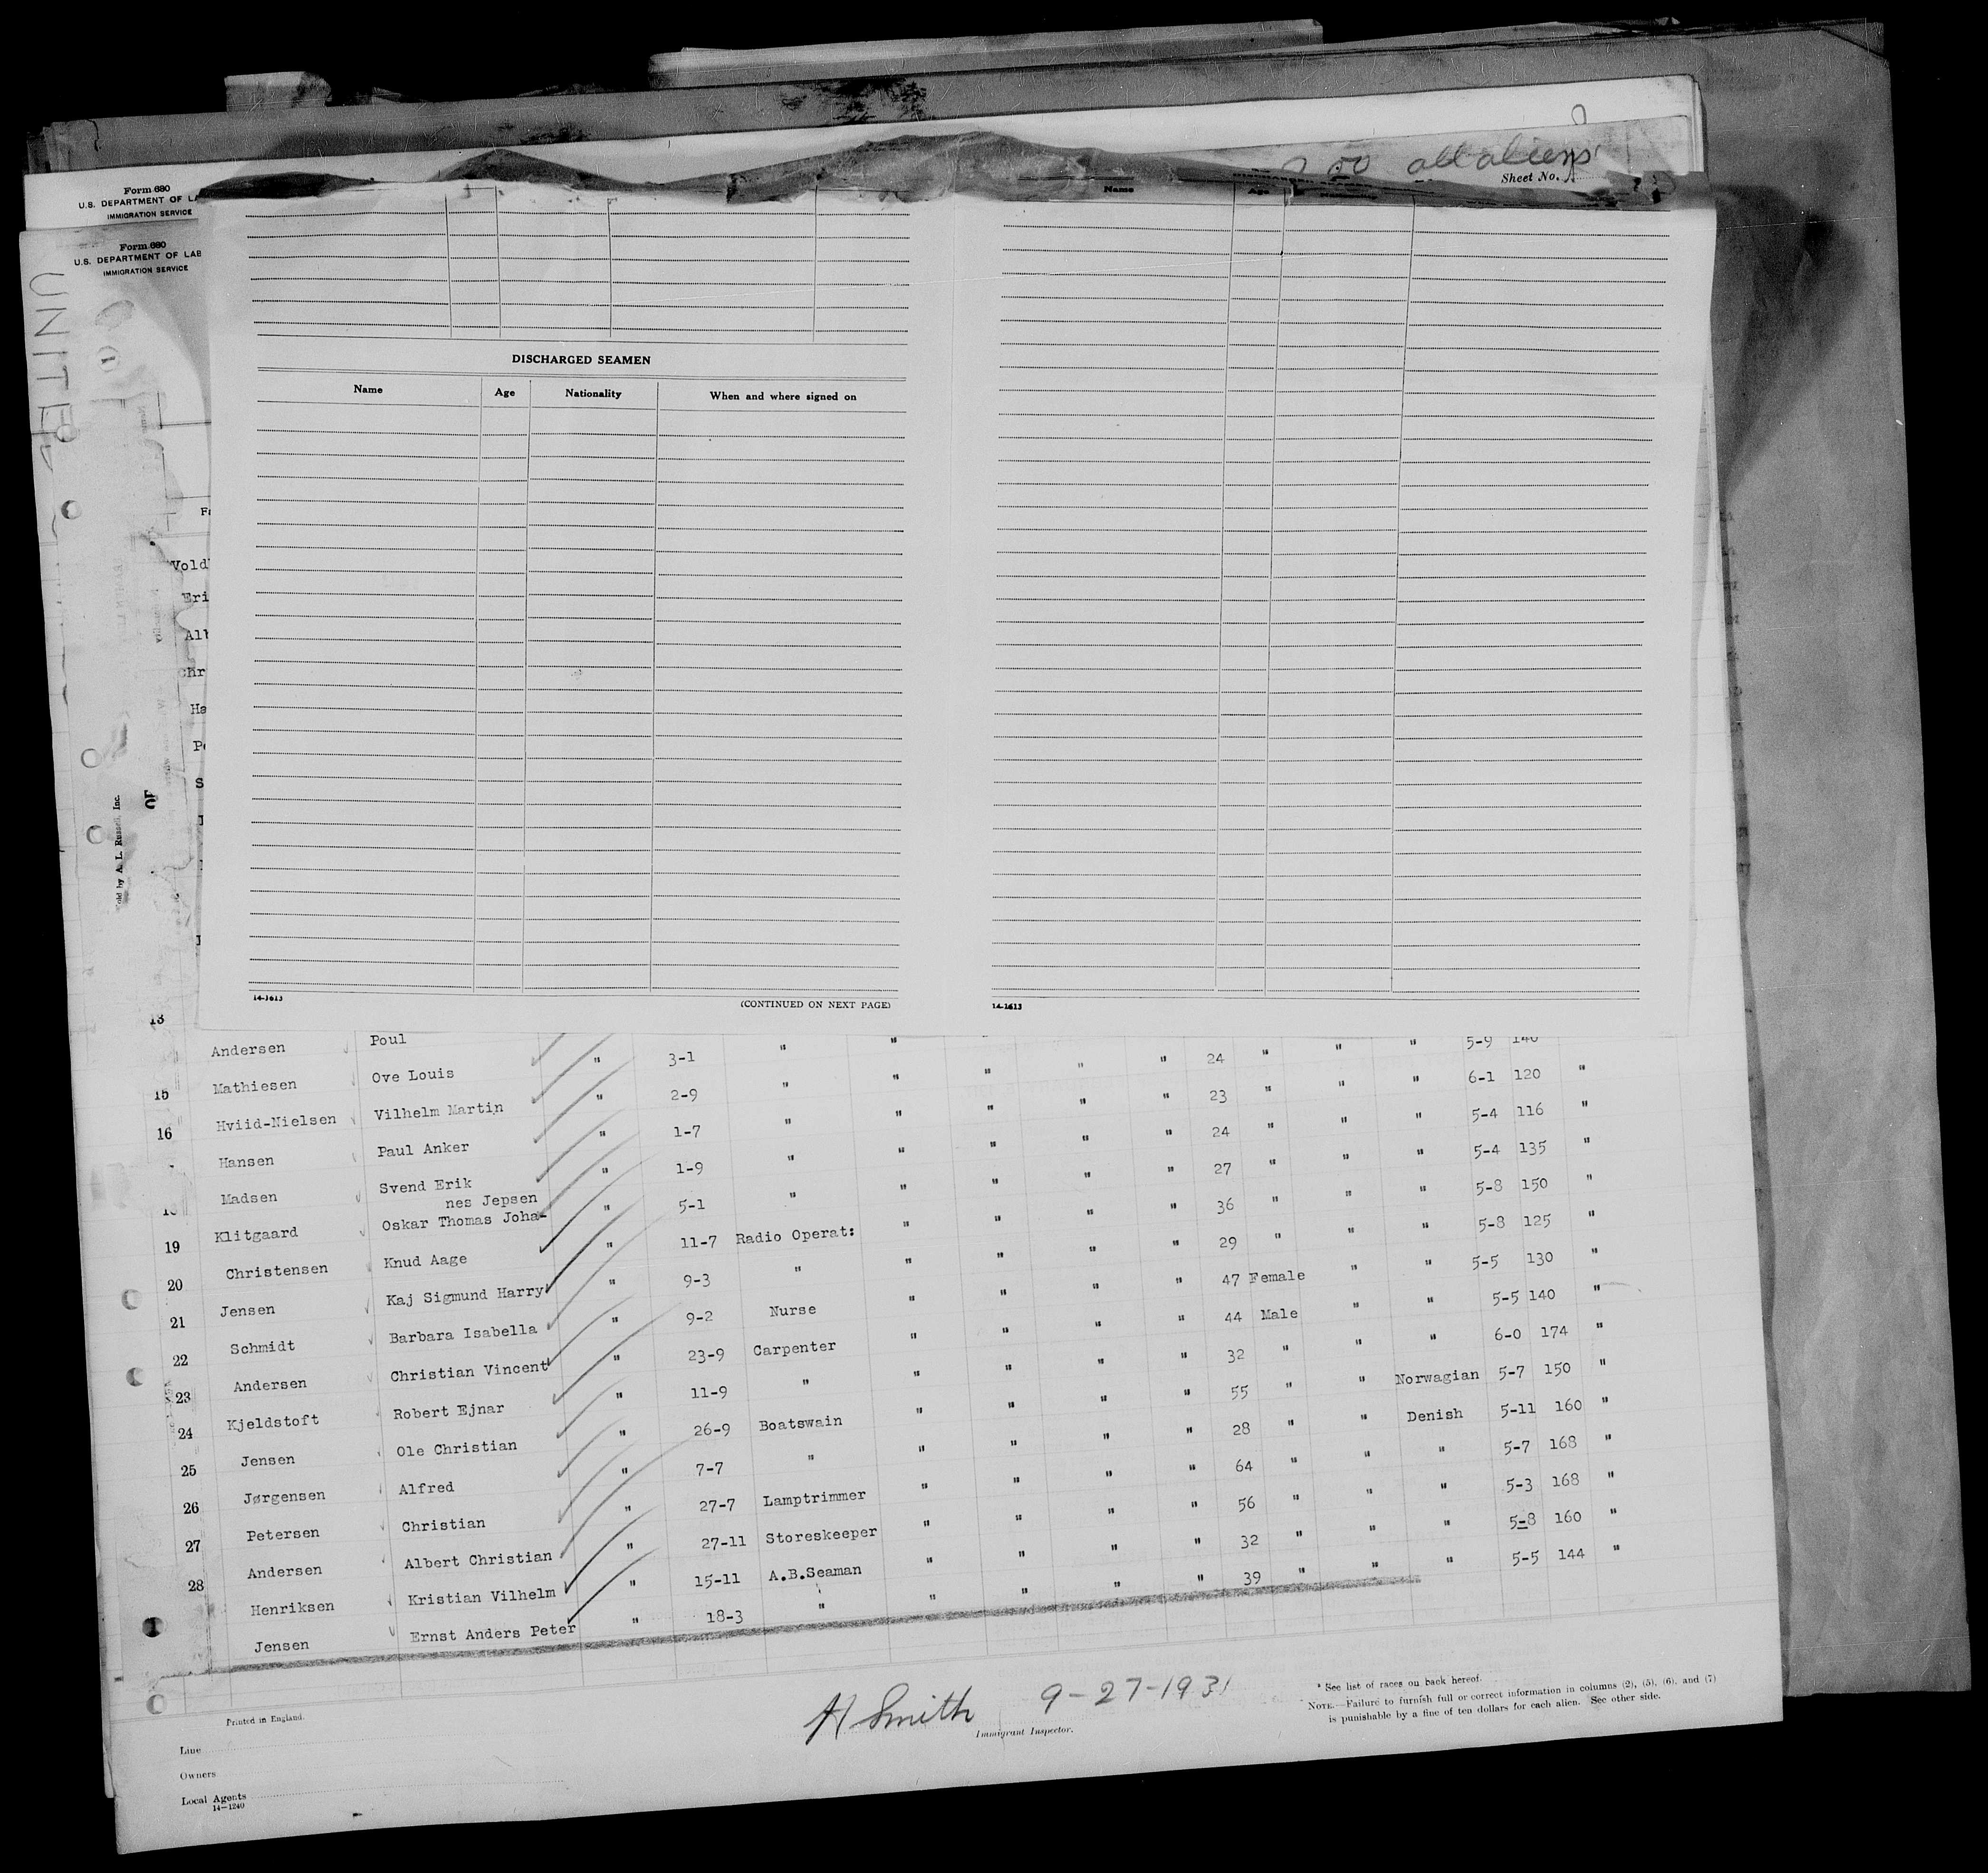 Form 680
U.S. DEPARTMENT OF LA
IMMIGRATION SERVICE
Form 680
U.S. DEPARTMENT OF LAB
IMMIGRATION SERVICE
50 all aliens
Sheet No.
Name Age
UNITED
DISCHARGED SEAMEN
Name Age Nationality When and where signed on
Vold
Eri
Alb
Chr
Ha
OF
Sold by A. L. Russell, Inc.
14-1613 (CONTINUED ON NEXT PAGE) 14-1613
13
Andersen Poul
15 Mathiesen Ove Louis " 3-1 " "
16 Hviid-Nielsen Vilhelm Martin " 2-9 " " " " " 24 " " " 5-9 140
Hansen Paul Anker " 1-7 " " " " " 23 " " " 6-1 120 "
Madsen Svend Erik " 1-9 " " " " " 24 " " " 5-4 116 "
nes Jepsen
19 Klitgaard Oskar Thomas Joha- " 5-1 " " " " " 27 " " " 5-4 135 "
20 Christensen Knud Aage " 11-7 Radio Operat: " " " " 36 " " " 5-8 150 "
21 Jensen Kaj Sigmund Harry " 9-3 " " " " " 29 " " " 5-8 125 "
22 Schmidt Barbara Isabella " 9-2 Nurse " " " " 47 Female " " 5-5 130 "
23 Andersen Christian Vincent " 23-9 Carpenter " " " " 44 Male " " 5-5 140 "
24 Kjeldstoft Robert Ejnar " 11-9 " " " " " 32 " " " 6-0 174 "
25 Jensen Ole Christian " 26-9 Boatswain " " " " 55 " " Norwagian 5-7 150 "
26 Jørgensen Alfred " 7-7 " " " " " 28 " " Denish 5-11 160 "
27 Petersen Christian " 27-7 Lamptrimmer " " " " 64 " " " 5-7 168 "
28 Andersen Albert Christian " 27-11 Storeskeeper " " " " 56 " " " 5-3 168 "
Henriksen Kristian Vilhelm " 15-11 A.B.Seaman " " " " 32 " " " 5-8 160 "
Jensen Ernst Anders Peter " 18-3 " " " " " 39 " " " 5-5 144 "
Printed in England.
H Smith 9-27-1931
Immigrant Inspector.
* See list of races on back hereof.
NOTE.—Failure to furnish full or correct information in columns (2), (5), (6), and (7)
is punishable by a fine of ten dollars for each alien. See other side.
Line
Owners
Local Agents
14-1240